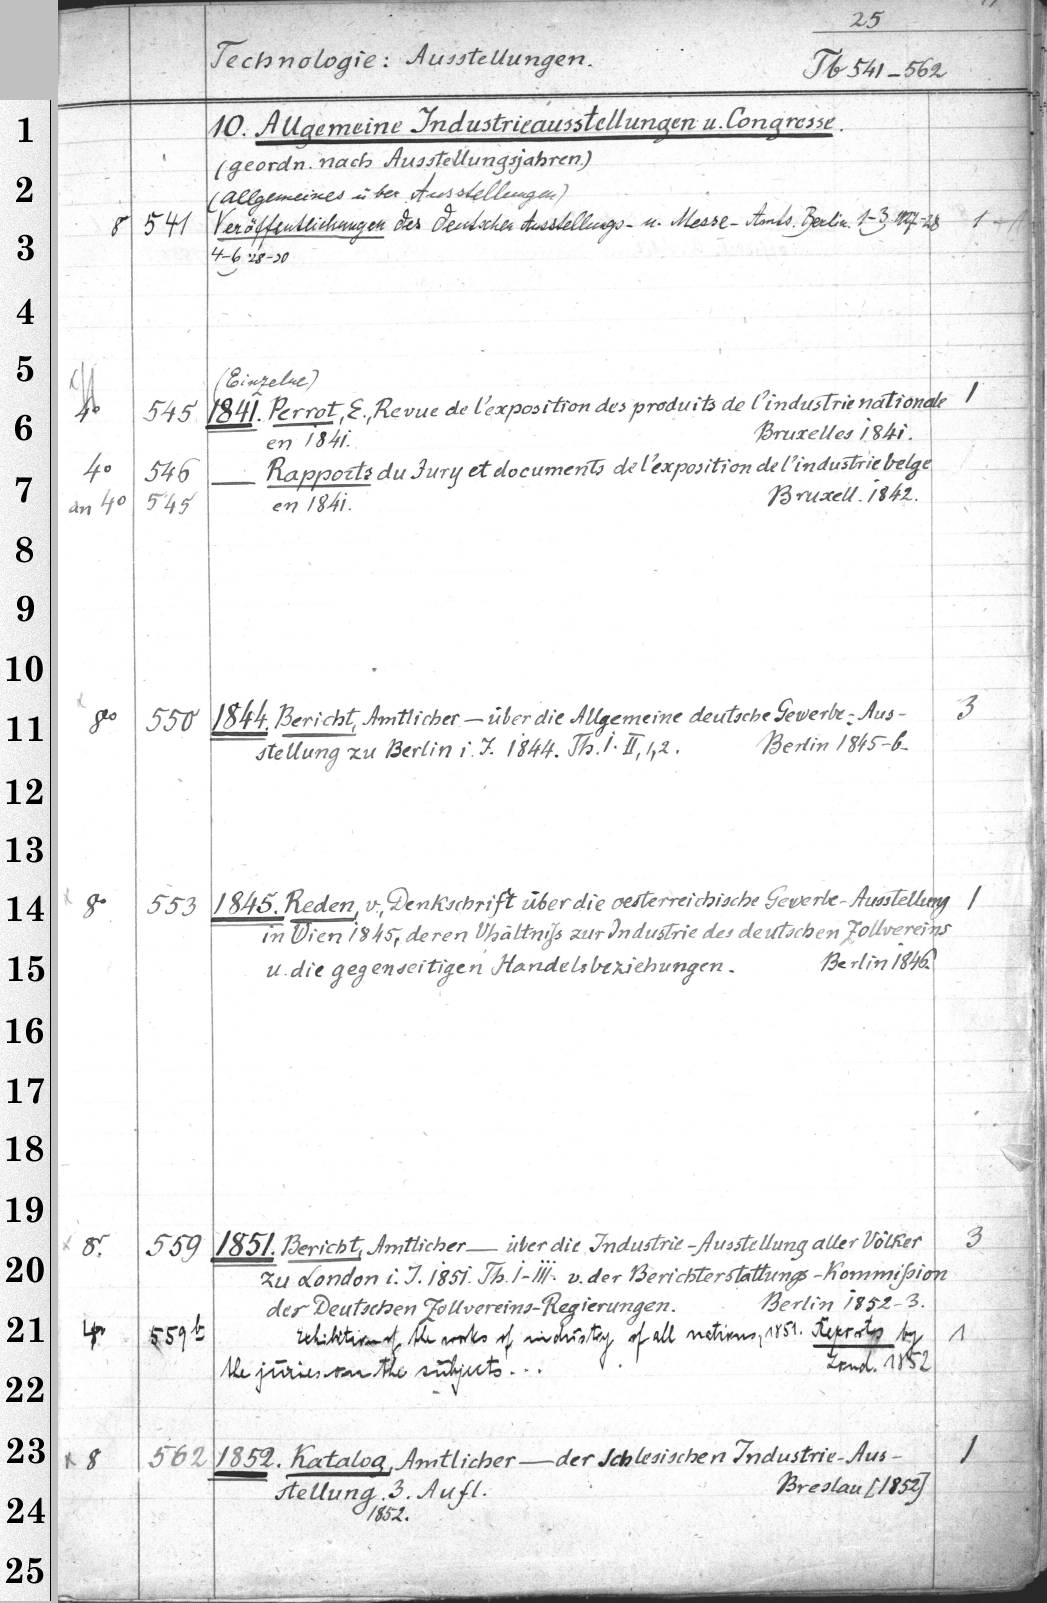 25
Technologie: Ausstellungen. Tb 541-562
1
10. Allgemeine Industrieausstellungen u. Congresse.
(geordn. nach Ausstellungsjahren)
2
(Allgemeines über Ausstellungen)
8 541 Veröffentlichungen des Deutschen Ausstellungs- u. Messe-Amts. Berlin. 1-3. 1927-28 1
3
4-6 28-30
4
5
(Einzelne)
4º 545 1841. Perrot, E., Revue de l'exposition des produits de l'industrie nationale 1
6
en 1841. Bruxelles 1841.
4º 546 — Rapports du Jury et documents de l'exposition de l'industrie belge
7
an 4º 545 en 1841. Bruxell. 1842.
8
9
10
8º 550 1844. Bericht, Amtlicher — über die Allgemeine deutsche Gewerbe-Aus- 3
11
stellung zu Berlin i. J. 1844. Th. I. II, 1,2. Berlin 1845-6.
12
13
14
8º 553 1845. Reden, v., Denkschrift über die oesterreichische Gewerbe-Ausstellung 1
in Wien 1845, deren Vhältniß zur Industrie des deutschen Zollvereins
15
u. die gegenseitigen Handelsbeziehungen. Berlin 1846.
16
17
18
19
8º. 559 1851. Bericht, Amtlicher — über die Industrie-Ausstellung aller Völker 3
20
zu London i. J. 1851. Th. I-III. v. der Berichterstattungs-Kommißion
der Deutschen Zollvereins-Regierungen. Berlin 1852-3.
21
4º 559b Exhibition of the works of industry of all nations, 1851. Reports by 1
the juries on the subjects... Lond. 1852
22
23
x 8 562 1852. Katalog, Amtlicher — der Schlesischen Industrie-Aus- 1
stellung. 3. Aufl. Breslau [1852]
24
1852.
25